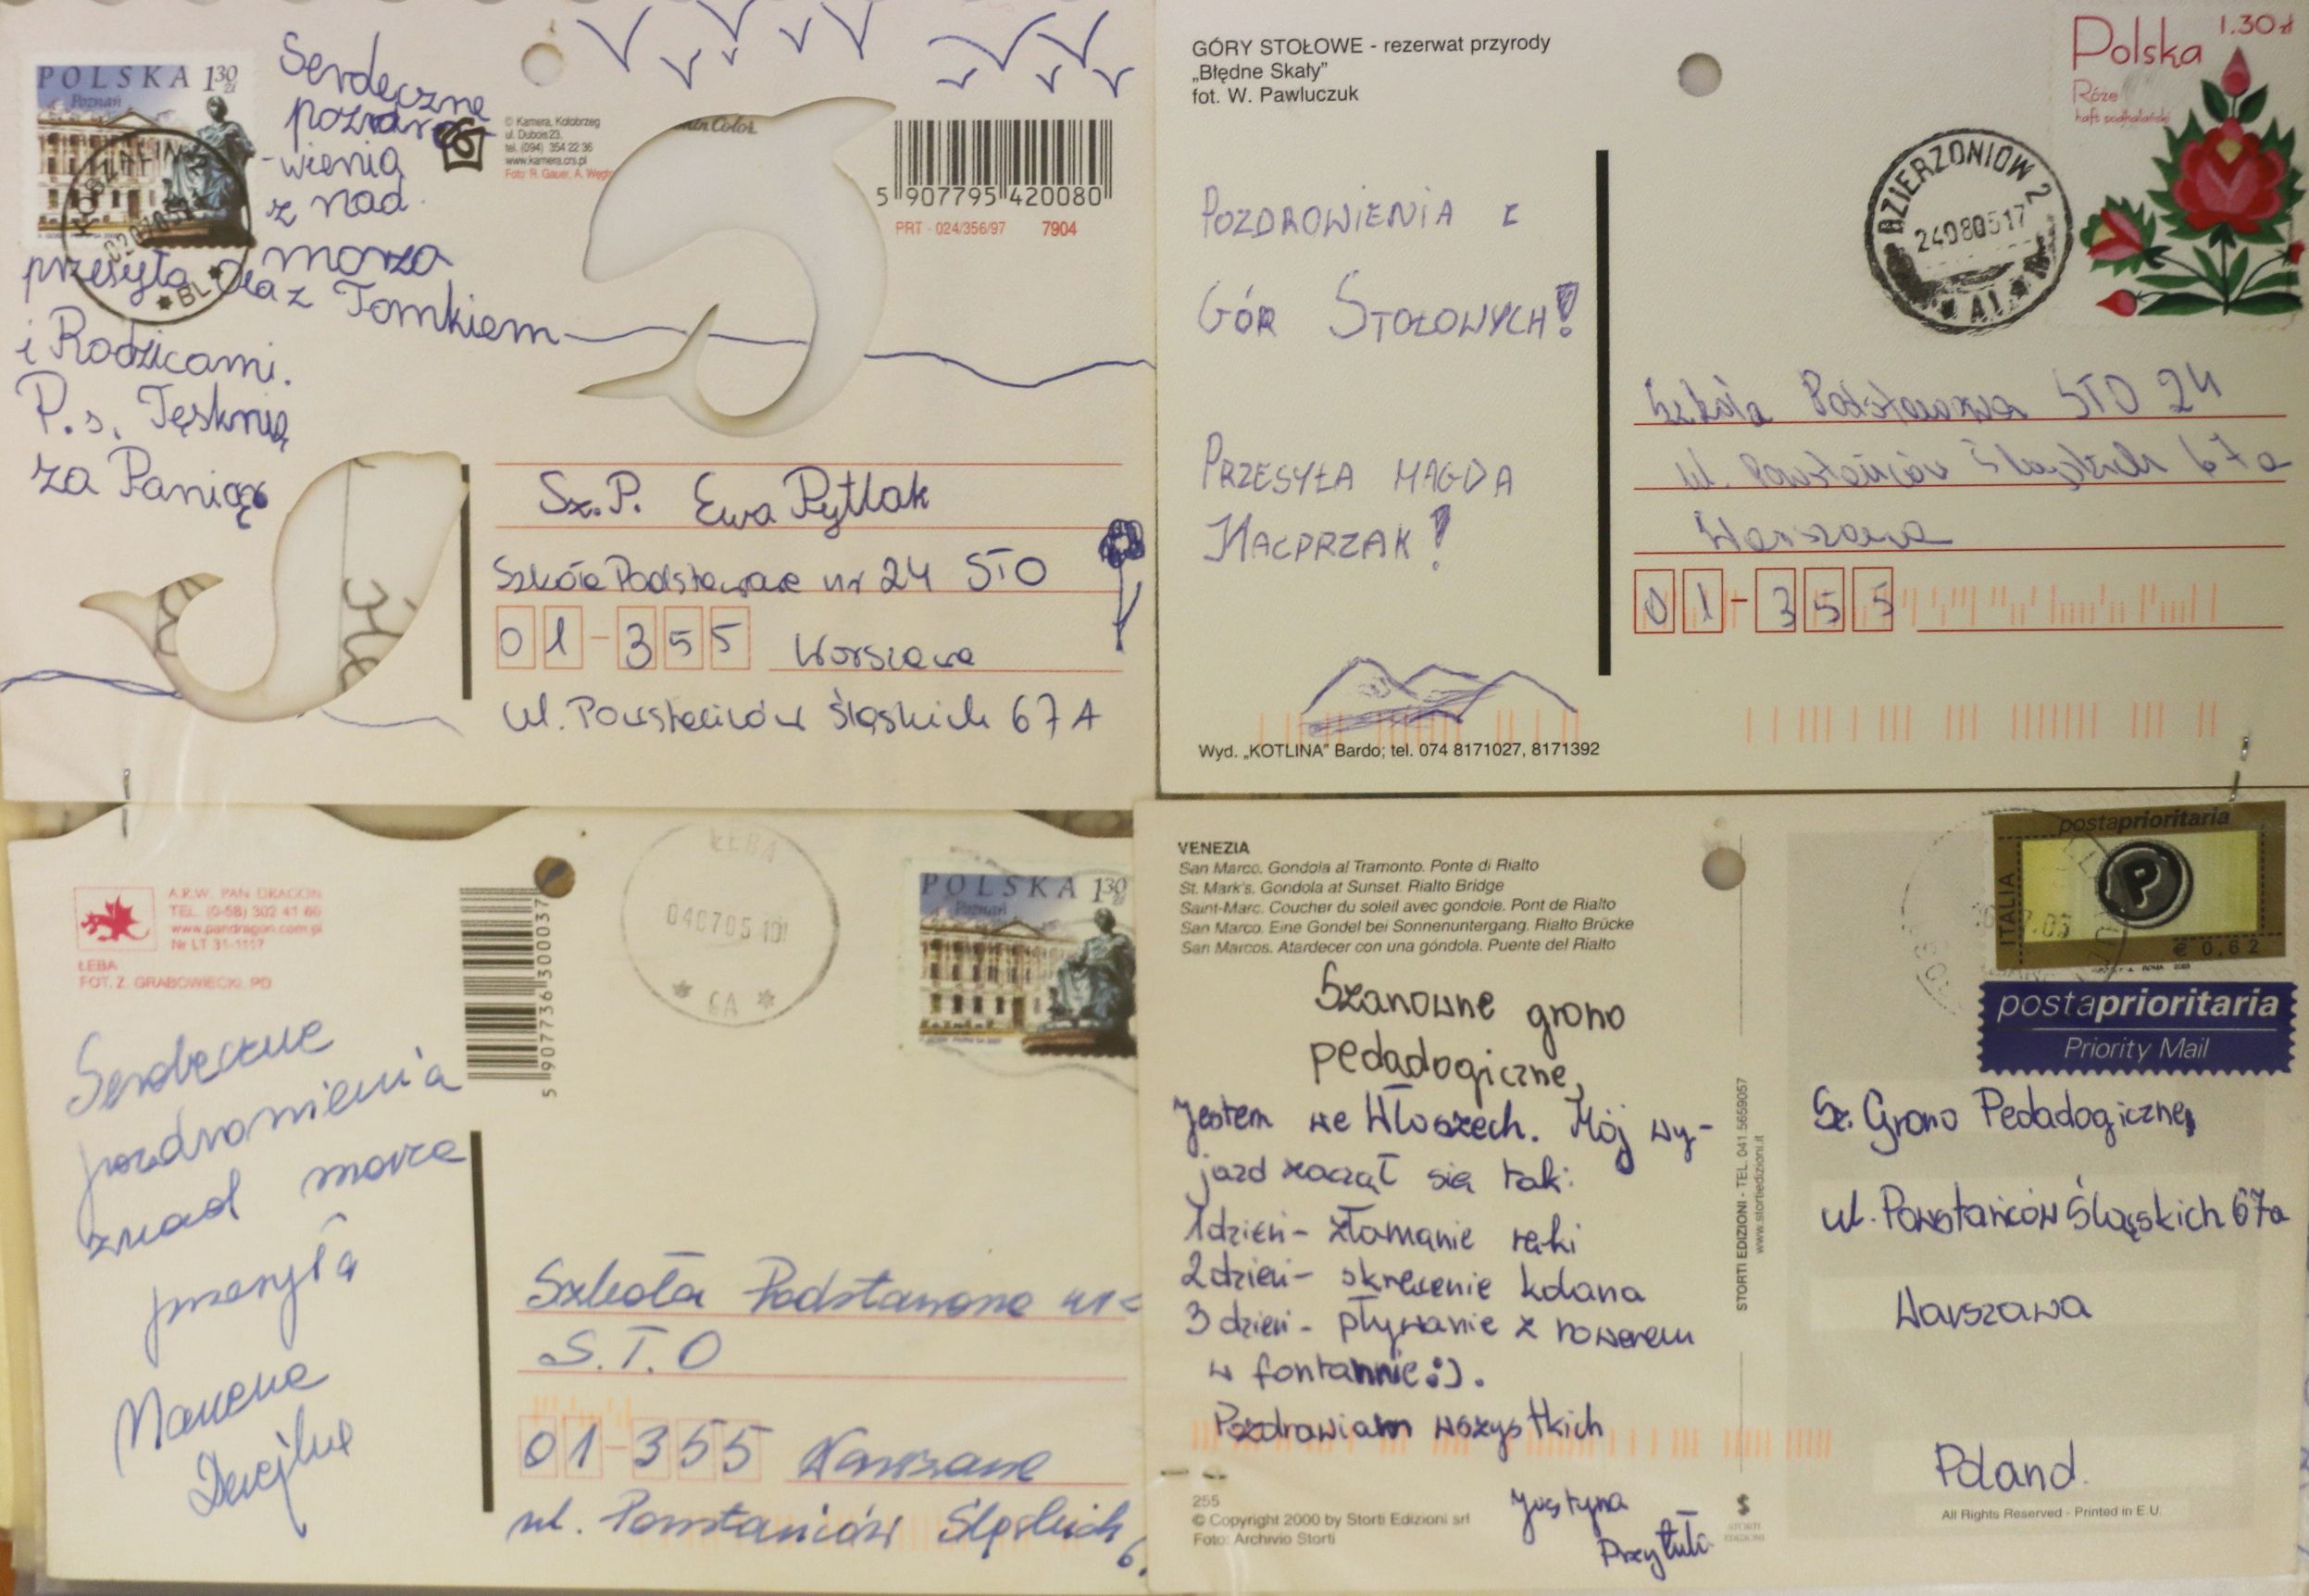 POLSKA 130 zł
Poznań
KOSZALIN 2
BL
Serdeczne
pozdro
-wienia
z nad
morza
przesyła Ola z Tomkiem
i Rodzicami.
P.s. Tęsknię
za Panią
© Kamera, Kołobrzeg
ul. Dubois 23,
tel. (094) 354 22 36
www.kamera.crs.pl
Foto: R. Gauer, A.
Color
5 907795 420080
PRT - 024/356/97 7904
Sz. P. Ewa Pytlak
Szkoła Podstawowa nr 24 STO
01-355 Warszawa
ul. Powstańców Śląskich 67A
GÓRY STOŁOWE - rezerwat przyrody
„Błędne Skały"
fot. W. Pawluczuk
POZDROWIENIA Z
GÓR STOŁOWYCH!
PRZESYŁA MAGDA
KACPRZAK!
Wyd. „KOTLINA" Bardo; tel. 074 8171027, 8171392
Polska 1.30 zł
Róże
haft podhalański
DZIERŻONIÓW 2
24080517
Szkoła Podstawowa STO 24
ul. Powstańców Śląskich 67a
Warszawa
01-355
A.R.W. PAN DRAGON
TEL. (0-58) 302 41 66
www.pandragon.com.pl
Nr LT 31-1107
ŁEBA
FOT. Z. GRABOWIECKI, PD
5 907736 300037
ŁEBA
040705 10
GA
POLSKA 130 zł
Poznań
Serdeczne
pozdrowienia
znad morza
przesyła
Marena
Szkoła Podstawowa nr
S.T.O
01-355 Warszawa
ul. Powstańców Śląskich 6
VENEZIA
San Marco. Gondola al Tramonto. Ponte di Rialto
St. Mark's. Gondola at Sunset. Rialto Bridge
Saint-Marc. Coucher du soleil avec gondole. Pont de Rialto
San Marco. Eine Gondel bei Sonnenuntergang. Rialto Brücke
San Marcos. Atardecer con una góndola. Puente del Rialto
Szanowne grono
pedadogiczne,
Jestem we Włoszech. Mój wy-
jazd zaczął się tak:
1 dzień - złamanie ręki
2 dzień - skręcenie kolana
3 dzień - pływanie z rowerem
w fontannie :).
Pozdrawiam wszystkich
Justyna
Przytuła
255
© Copyright 2000 by Storti Edizioni srl
Foto: Archivio Storti
STORTI EDIZIONI - TEL. 041.5659057
www.stortiedizioni.it
STORTI
EDIZIONI
postaprioritaria
P
ITALIA
€ 0,62
postaprioritaria
Priority Mail
Sz. Grono Pedadogiczne,
ul. Powstańców Śląskich 67a
Warszawa
Poland.
All Rights Reserved - Printed in E.U.